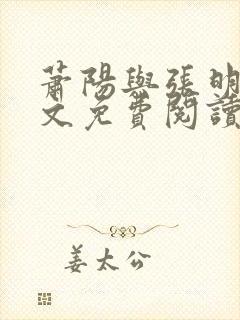 蕭陽與張明
文免費閱讀
姜太公